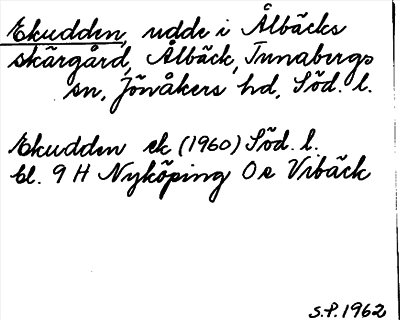 Ekudden, udde i Ålbäcks
skärgård, Ålbäck, Tunabergs
sn, Jönåkers hd, Söd. l.
Ekudden ek (1960) Söd. l.
bl. 9 H Nyköping O s Vibäck
S.P. 1962